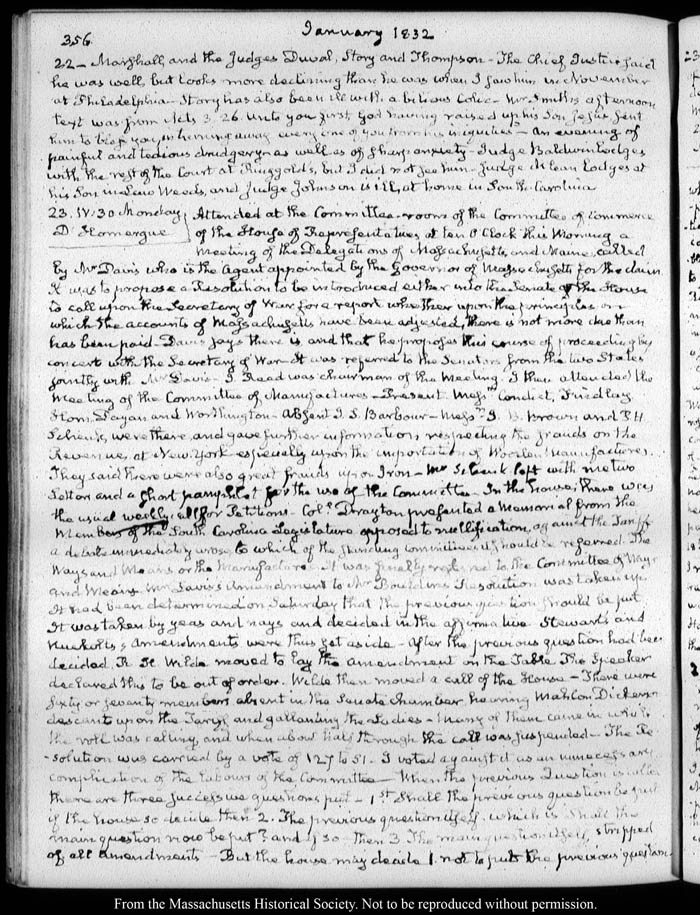 356
January 1832
22— Marshall, and the Judges Duval, Story and Thompson— The Chief Justice said
he was well, but looks more declining than he was when I saw him in November
at Philadelphia— Story has also been ill with a bilious Colic— Mr Smith's afternoon
text was from Acts 3. 26. Unto you first, God having raised up his Son Jesus sent
him to bless you, in turning away every one of you from his iniquities— an evening of
painful and tedious drudgery as well as of sharp anxiety— Judge Baldwin lodges
with the rest of the Court at Ringgold's, but I did not see him— Judge McLean lodges at
his Son in Law Weeds, and Judge Johnson is ill, at home in South-Carolina
23. IV:30 Monday
D' Homergue
Attended at the Committee-room of the Committee of Commerce
of the House of Representatives, at ten O'Clock this Morning a
meeting of the Delegations of Massachusetts and Maine, called
by Mr Davis who is the Agent appointed by the Governor of Massachusetts for the claim
It was to propose a Resolution to be introduced either into the Senate or the House
to call upon the Secretary of War for a report whether upon the principles on
which the accounts of Massachusetts have been adjusted, there is not more due than
has been paid— Davis says there is and that he proposes this course of proceeding by
concert with the Secretary of War— It was referred to the Senators from the two States
jointly with Mr Davis— J. Reed was chairman of the Meeting. I then attended the
Meeting of the Committee of Manufactures— Present Messrs Condict, Findlay
Horn, Dayan and Worthington— Absent J. S. Barbour— Messrs J. B. Brown and P H
Schenck, were there, and gave further information respecting the frauds on the
Revenue, at New York especially upon the importation of Woollen Manufactures.
They said there were also great frauds upon Iron— Mr Schenck left with me two
letters and a short pamphlet for the use of the Committee— In the house, there was
the usual weekly call for Petitions— Coll Drayton presented a Memorial from the
Members of the South Carolina Legislature opposed to nullification, against the Tariff
a debate immediately arose, to which of the standing committees it should be referred. The
Ways and Means or the Manufactures— It was finally referred to the Committee of Ways
and Means. Mr Davis's Amendment to Mr Bouldin's Resolution was taken up
It had been determined on Saturday that the previous question should be put
It was taken by yeas and nays and decided in the affirmative Stewart's and
Nuckolls's Amendments were thus set aside— After the previous question had been
decided R. H. Wilde moved to lay the amendment on the Table. The Speaker
declared this to be out of order. Wilde then moved a call of the House— There were
sixty or seventy members absent in the Senate Chamber hearing Mahlon Dickerson
descant upon the Tariff and gallanting the Ladies— Many of them came in while
the roll was calling, and when about half through the call was suspended— The Re-
solution was carried by a vote of 127 to 51. I voted against it as an unnecessary
complication of the labours of the Committee— When the previous Question is called
there are three successive questions put— 1st Shall the previous question be put
if the house so decide then 2. The previous question itself, which is shall the
main question now be put? and if so— then 3 The main question itself, stripped
of all amendments— But the house may decide 1. not to put the previous question
From the Massachusetts Historical Society. Not to be reproduced without permission.